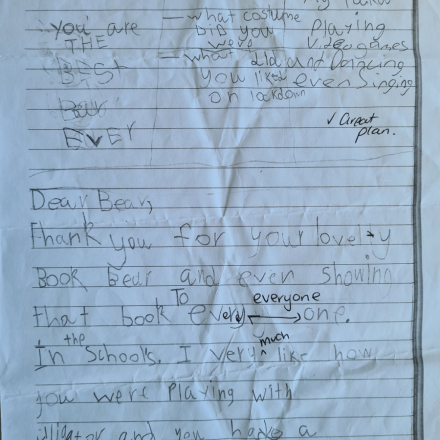 you are
THE
BEST
Bear
EVER
— what costume
DID you
were
— what did
you like
on lockdown
Playing
Videogames
and Dancing
even Singing
✓ Great
plan.
Dear Bear,
Thank you for your lovely
Book Bear and even showing
To everyone
that book every one.
the much
In Schools. I very like how
you were Playing with
and you have a